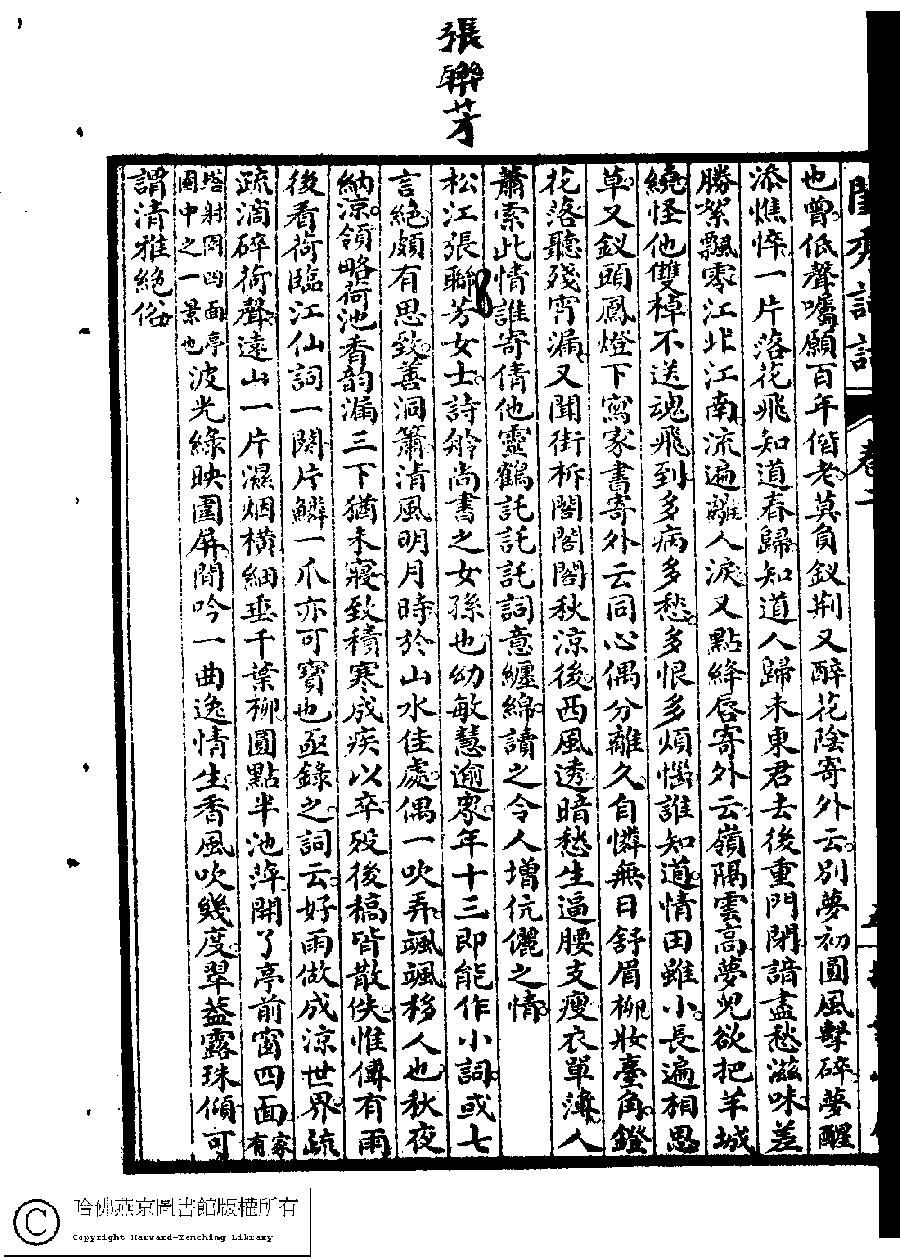 張聯芳
閨秀詞話 卷二
也曾低聲囑願百年偕老莫負釵荆又醉花陰寄外云別夢初圓風擊碎夢醒
添憔悴一片落花飛知道春歸知道人歸未東君去後重門閉諳盡愁滋味差
勝絮飄零江北江南流遍離人淚又點絳唇寄外云嶺隔雲高夢兒欲把羊城
繞怪他雙棹不送魂飛到多病多愁多恨多煩惱誰知道情田雖小長遍相思
草又釵頭鳳燈下寫家書寄外云同心偶分離久自憐無日舒眉柳妝臺角鐙
花落聽殘宵漏又聞街柝閣閣閣秋涼後西風透暗愁生逼腰支瘦衣單薄人
蕭索此情誰寄倩他靈鶴託託託詞意纏綿讀之令人增伉儷之情
松江張聯芳女士詩舲尚書之女孫也幼敏慧逾衆年十三即能作小詞或七
言絕頗有思致善洞簫清風明月時於山水佳處偶一吹弄颯颯移人也秋夜
納涼領略荷池香韵漏三下猶未寢致積寒成疾以卒歿後稿皆散佚惟傳有雨
後看荷臨江仙詞一闋片鱗一爪亦可寶也亟錄之詞云好雨做成涼世界疏
疏滴碎荷聲遠山一片濕烟橫細垂千葉柳圓點半池萍開了亭前窗四面家有
塔射園四面亭
園中之一景也波光綠映圍屏閒吟一曲逸情生香風吹幾度翠蓋露珠傾可
謂清雅絕俗
哈佛燕京圖書館版權所有
Copyright Harvard-Yenching Library